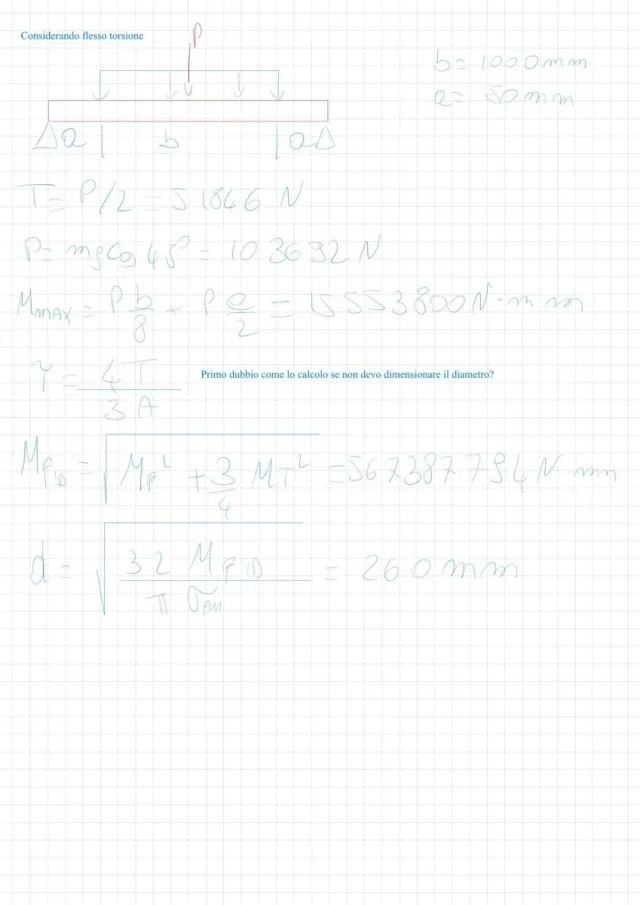 Considerando flesso torsione
P
b = 1000 mm
a = 50 mm
a | b | a
T = P/2 = 51846 N
P = mg cos 45° = 103692 N
M MAX = P b/8 + P a/2 = 15553800 N·mm
τ = 4T/3A
Primo dubbio come lo calcolo se non devo dimensionare il diametro?
MfID = √(Mf² + 3/4 MT²) = 567387794 N mm
d = √(32 MfID / π σAM) = 260 mm